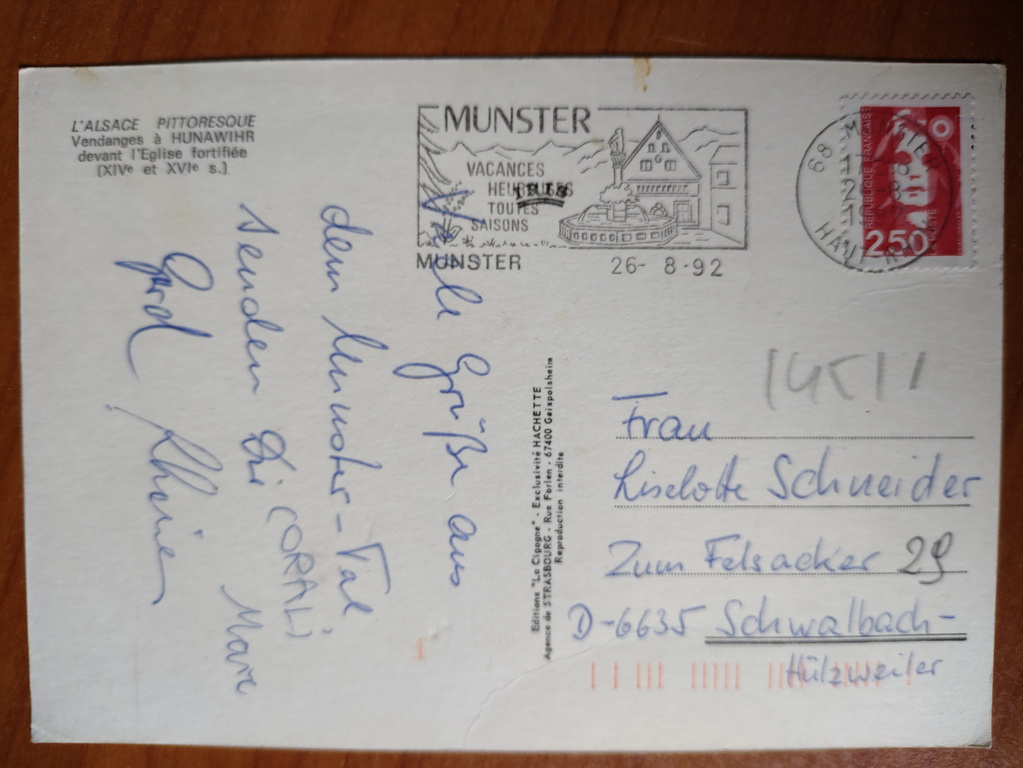 L'ALSACE PITTORESQUE
Vendanges à HUNAWIHR
devant l'Eglise fortifiée
(XIVe et XVIe s.)
MUNSTER
VACANCES
HEUREUSES
TOUTES
SAISONS
MUNSTER
26- 8-92
RÉPUBLIQUE FRANÇAIS
2,50
LA POSTE
68 MUNSTER
HAUT RHIN
Viele Grüße aus
dem Munster-Tal
senden Dir CORALI
Marc
Gerd
Editions "La Cigogne" - Exclusivité HACHETTE
Agence de STRASBOURG - Rue Forlen - 67400 Geispolsheim
Reproduction interdite
Frau
Liselotte Schneider
Zum Felsacker 29
D-6635 Schwalbach-
Hülzweiler